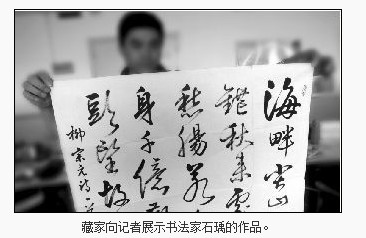 海畔尖山
鋩秋来
愁腸若
身千億
頭望故
柳宗元詩一
藏家向记者展示书法家石瑀的作品。